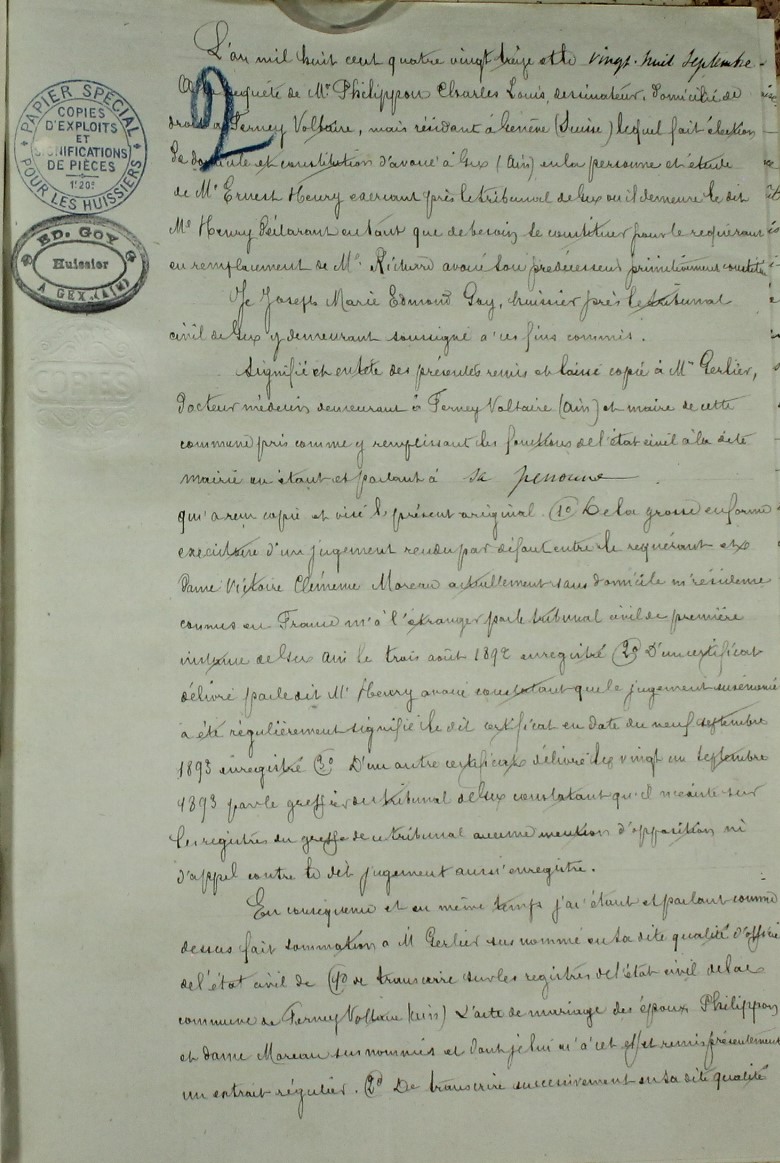 PAPIER SPÉCIAL
COPIES
D'EXPLOITS
ET
SIGNIFICATIONS
DE PIÈCES
1f 20c
POUR LES HUISSIERS
ED. GOY
Huissier
A GEX (AIN)
COPIES
2
L'an mil huit cent quatre vingt treize et le vingt-huit septembre
A la requête de Mr Philippon Charles Louis, dessinateur, domicilié de
droit à Ferney Voltaire, mais résidant à Genève (Suisse) lequel fait élection
de domicile et constitution d'avoué à Gex (Ain) en la personne et étude
de Me Ernest Henry exerçant près le tribunal de Gex où il demeure le dit
Me Henry déclarant en tant que de besoin se constituer pour le requérant
en remplacement de Me Richerd avoué son prédécesseur primitivement constitué
Je Joseph Marie Edmond Goy, huissier près le tribunal
civil de Gex y demeurant soussigné à ces fins commis.
Signifié et en tête des présentes remis et laissé copié à Mr Gerlier,
docteur médecin demeurant à Ferney Voltaire (Ain) et maire de cette
commune pris comme y remplissant les fonctions de l'état civil à la dite
mairie en étant et parlant à sa personne
qui a reçu copie et visé le présent original. 1o De la grosse en forme
exécutoire d'un jugement rendu par défaut entre le requérant et
Dame Victoire Clémence Moreau actuellement sans domicile ni résidence
connus en France ni à l'étranger par le tribunal civil de première
instance de Gex Ain le trois août 1892 enregistré 2o D'un certificat
délivré par le dit Me Henry avoué constatant que le jugement susénoncé
a été régulièrement signifié le dit certificat en date du neuf septembre
1893 enregistré 3o D'un autre certificat délivré le vingt un septembre
1893 par le greffier du tribunal de Gex constatant qu'il n'existe sur
les registres du greffe de ce tribunal aucune mention d'opposition ni
d'appel contre le dit jugement aussi enregistré.
En conséquence et en même temps j'ai étant et parlant comme
dessus fait sommation à M Gerlier sus nommé en sa dite qualité d'officier
de l'état civil de 1o de transcrire sur les registres de l'état civil de la
commune de Ferney Voltaire (Ain) L'acte de mariage des époux Philippon
et dame Moreau sus nommés et dont je lui ai à cet effet remis présentement
un extrait régulier. 2o De transcrire successivement en sa dite qualité